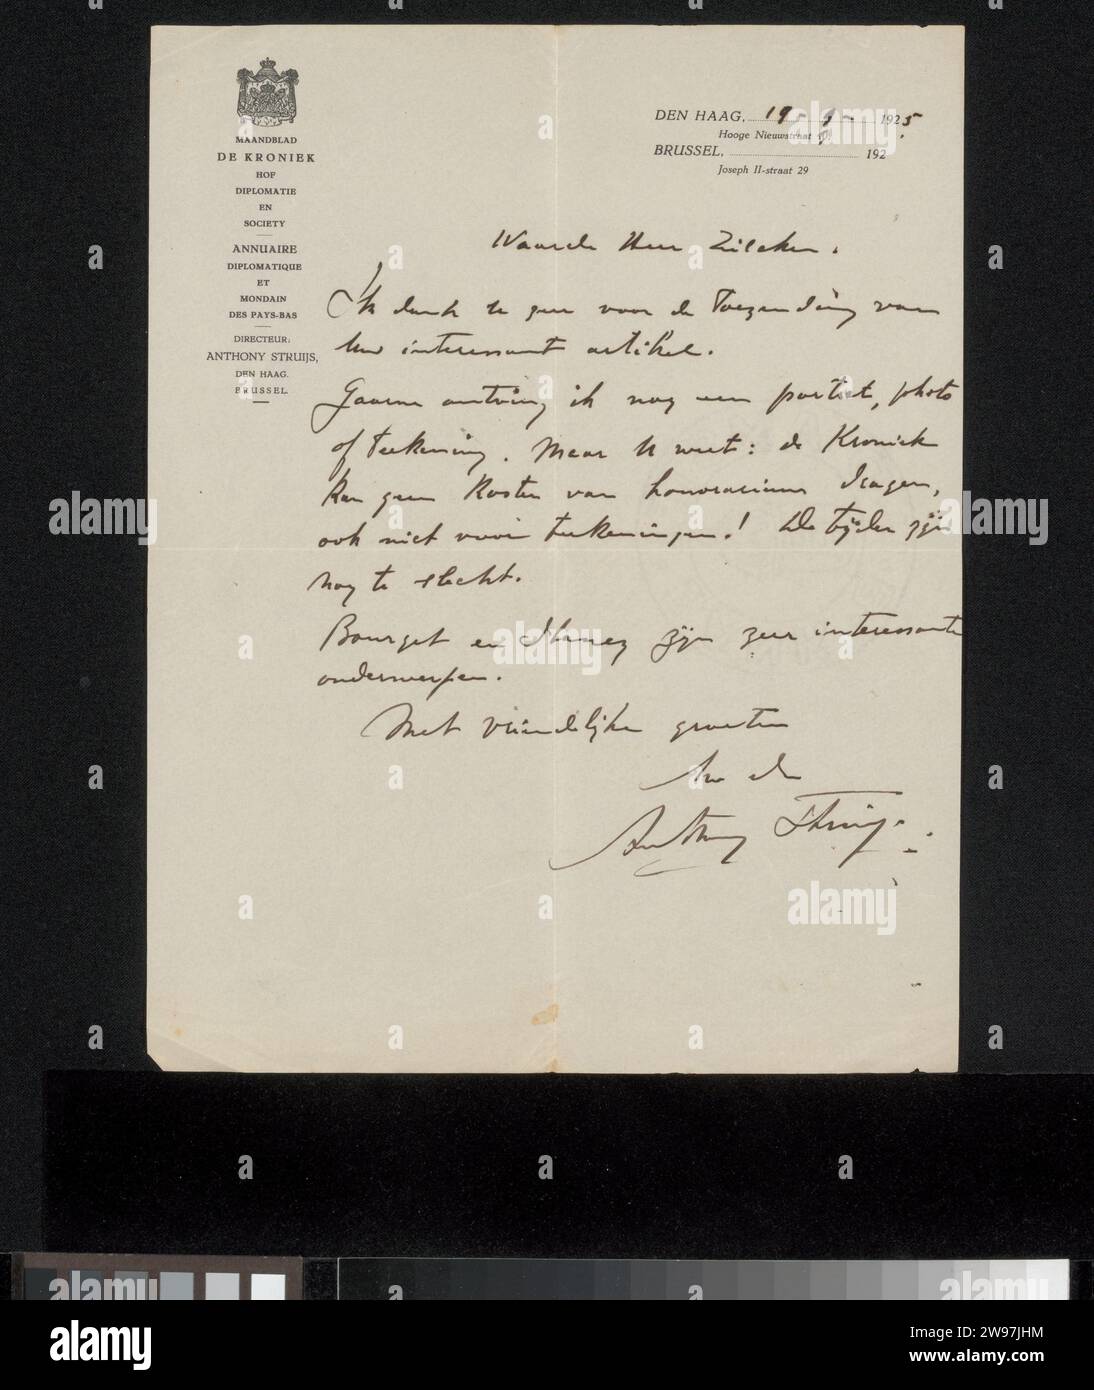 MAANDBLAD
DE KRONIEK
HOF
DIPLOMATIE
EN
SOCIETY
ANNUAIRE
DIPLOMATIQUE
ET
MONDAIN
DES PAYS-BAS
DIRECTEUR:
ANTHONY STRUIJS,
DEN HAAG.
BRUSSEL.
DEN HAAG, 19 - 9 - 1925.
Hooge Nieuwstraat
BRUSSEL, 192
Joseph II-straat 29
Waarde Heer Zilcken.
Ik dank U zeer voor de toezending van
Uw interessant artikel.
Gaarne ontving ik nog een portret, photo
of teekening. Maar U weet: de Kroniek
kan geen kosten van honorarium dragen,
ook niet voor teekeningen! De tijden zijn
nog te slecht.
Bourget en zijn zeer interessante
onderwerpen.
Met vriendelijke groeten
Anthony Struijs.
alamy
Image ID: 2W97JHM
www.alamy.com